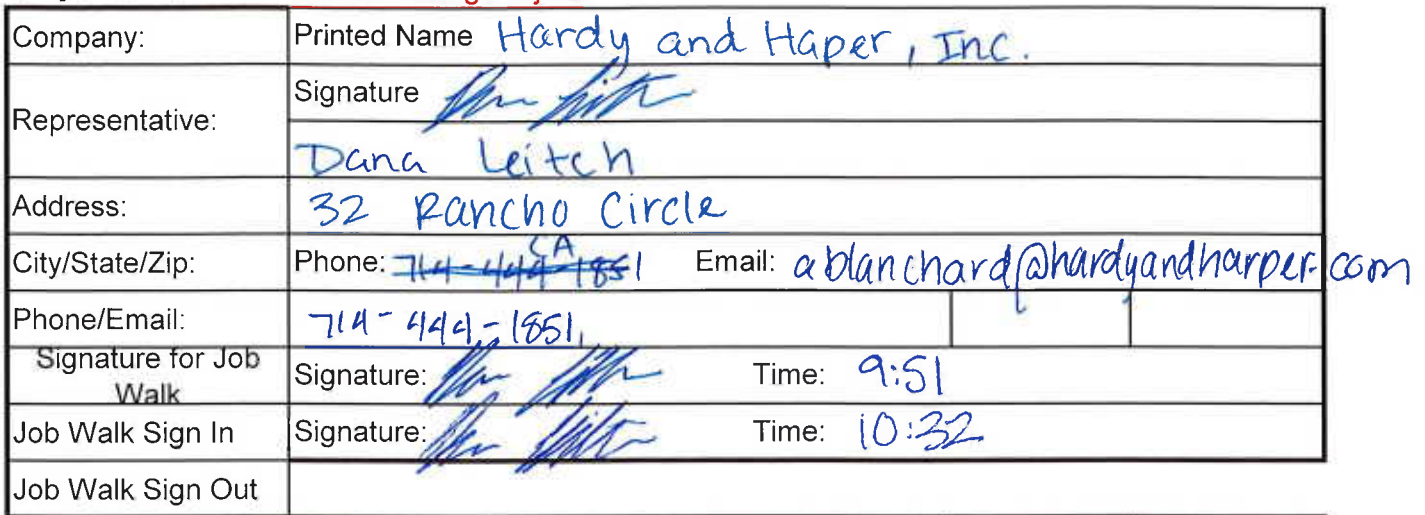 Company: Printed Name Hardy and Haper, Inc.
Representative: Signature
Dana Leitch
Address: 32 Rancho Circle
City/State/Zip: Phone: 714-444-1851 CA Email: ablanchard@hardyandharper.com
Phone/Email: 714-444-1851
Signature for Job Walk Signature: Time: 9:51
Job Walk Sign In Signature: Time: 10:32
Job Walk Sign Out